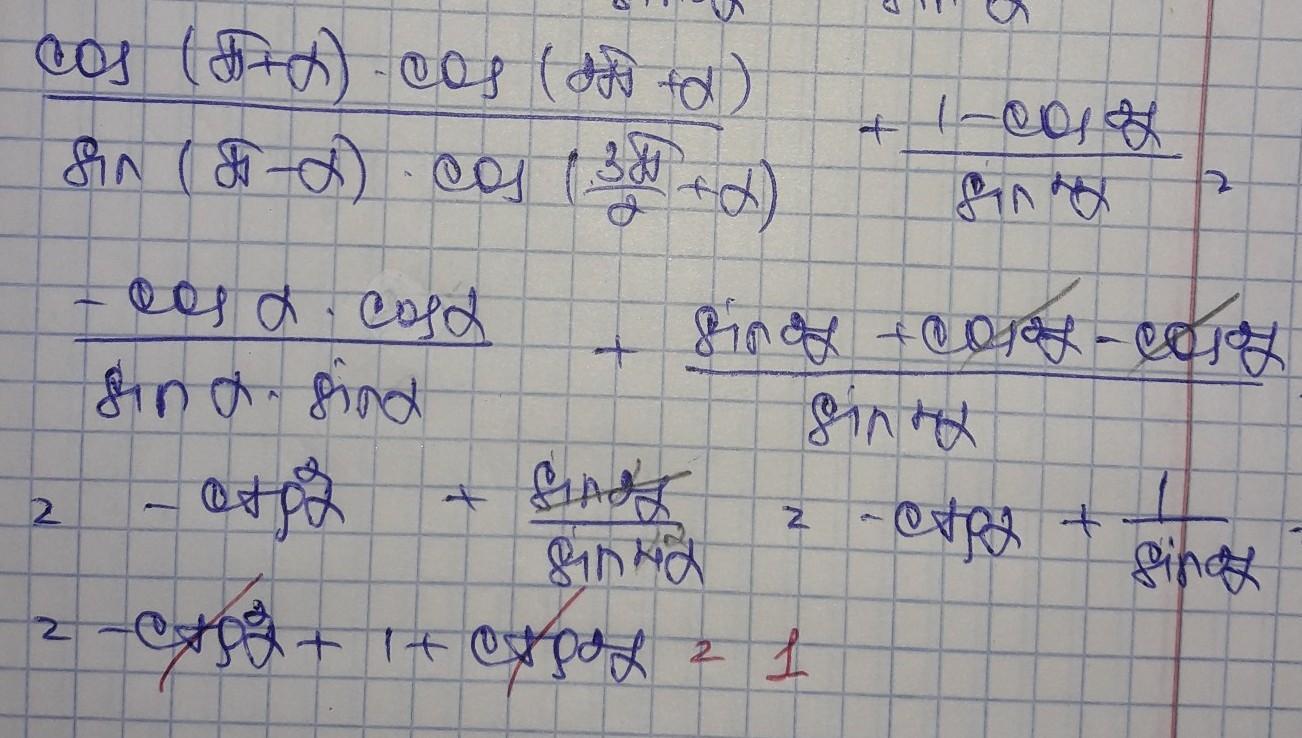 cos (π+α) · cos (2π+α) / sin (π-α) · cos (3π/2 + α) + 1 - cos²α / sin⁴α =
- cos α · cos α / sin α · sin α + sin²α + cos²α - cos²α / sin⁴α
= - ctg²α + sin²α / sin⁴α = - ctg²α + 1 / sin²α
= - ctg²α + 1 + ctg²α = 1